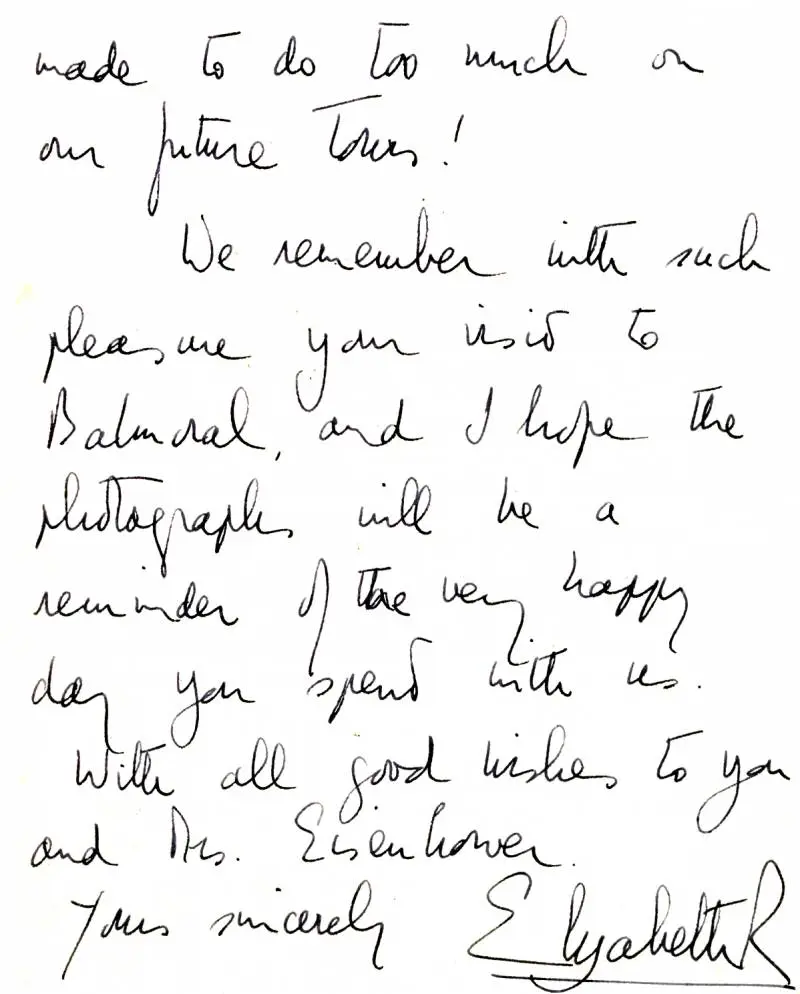 made to do too much on
our future Tours!
We remember with such
pleasure your visit to
Balmoral, and I hope the
photographs will be a
reminder of the very happy
day you spent with us.
With all good wishes to you
and Mrs. Eisenhower.
Yours sincerely Elizabeth R